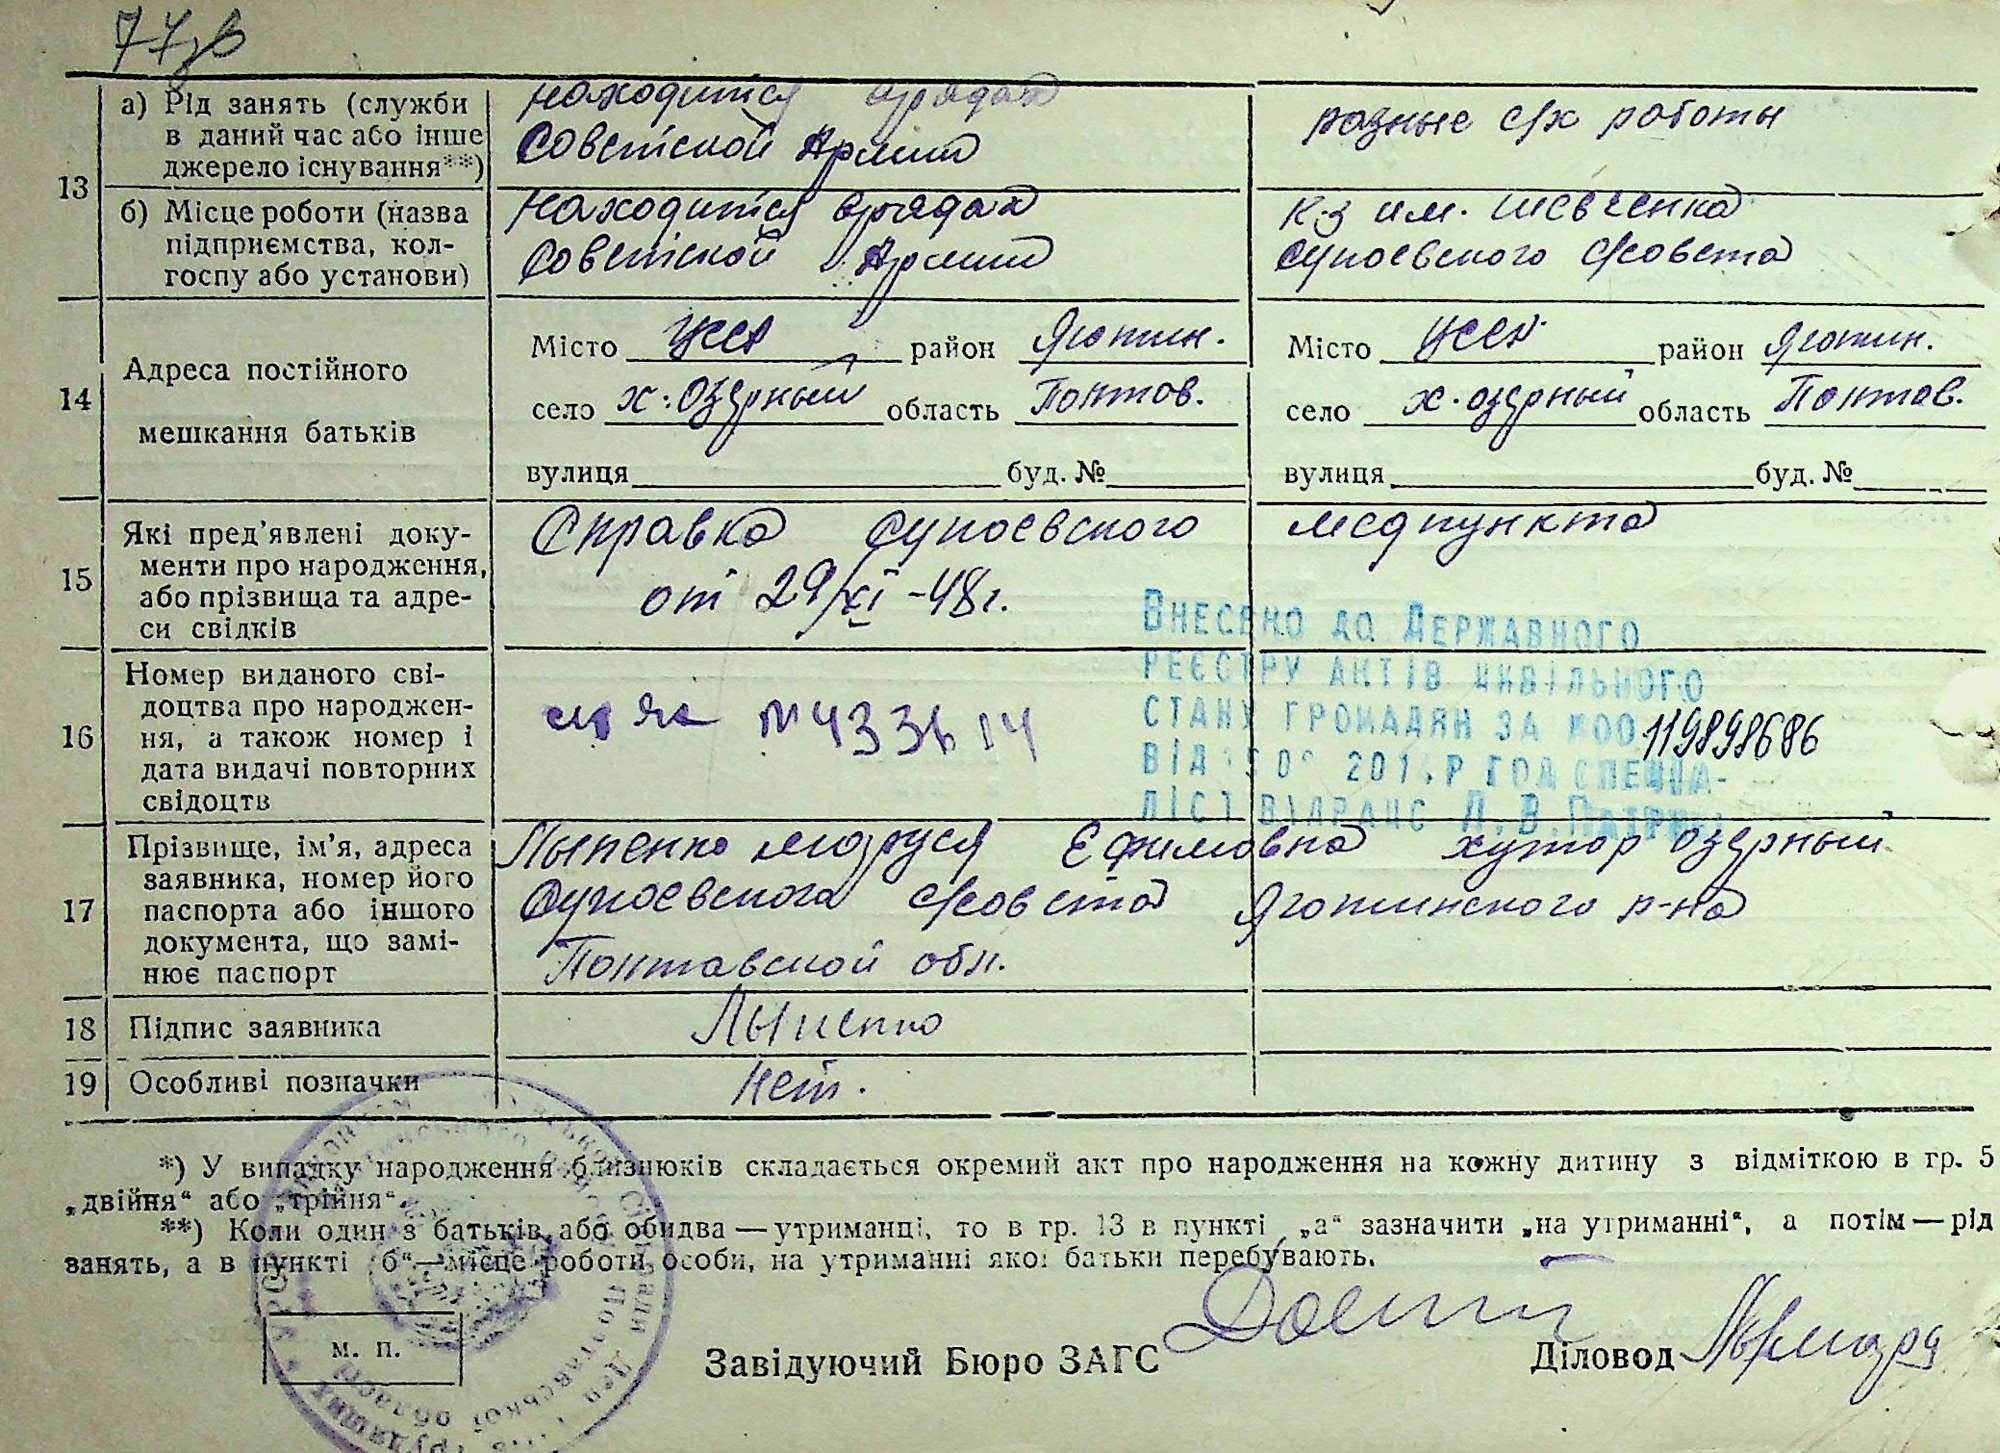 77зв
13
а) Рід занять (служби
в даний час або інше
джерело існування**)
находится в рядах
Советской Армии
разные с/х работы
б) Місце роботи (назва
підприємства, кол-
госпу або установи)
находится в рядах
Советской Армии
к-з им. Шевченка
Супоевского с/совета
14
Адреса постійного
мешкання батьків
Місто УССР район Яготин.
село х. Озерный область Полтав.
вулиця буд. №
Місто УССР район Яготин.
село х. Озерный область Полтав.
вулиця буд. №
15
Які пред'явлені доку-
менти про народження,
або прізвища та адре-
си свідків
Справка Супоевского медпункта
от 29/XI-48г.
16
Номер виданого сві-
доцтва про народжен-
ня, а також номер і
дата видачі повторних
свідоцтв
№ 433614
Внесено до Державного
реєстру актів цивільного
стану громадян за №00119898686
від 201 р
17
Прізвище, ім'я, адреса
заявника, номер його
паспорта або іншого
документа, що замі-
нює паспорт
Лыпенко Маруся Ефимовна хутор Озерный
Супоевского с/совета Яготинского р-на
Полтавской обл.
18
Підпис заявника
Лыпенко
19
Особливі позначки
нет.
*) У випадку народження близнюків складається окремий акт про народження на кожну дитину з відміткою в гр. 5
„двійня“ або „трійня“.
**) Коли один з батьків або обидва — утриманці, то в гр. 13 в пункті „а“ зазначити „на утриманні“, а потім — рід
занять, а в пункті „б“ — місце роботи особи, на утриманні якої батьки перебувають.
м. п.
Завідуючий Бюро ЗАГС
Діловод